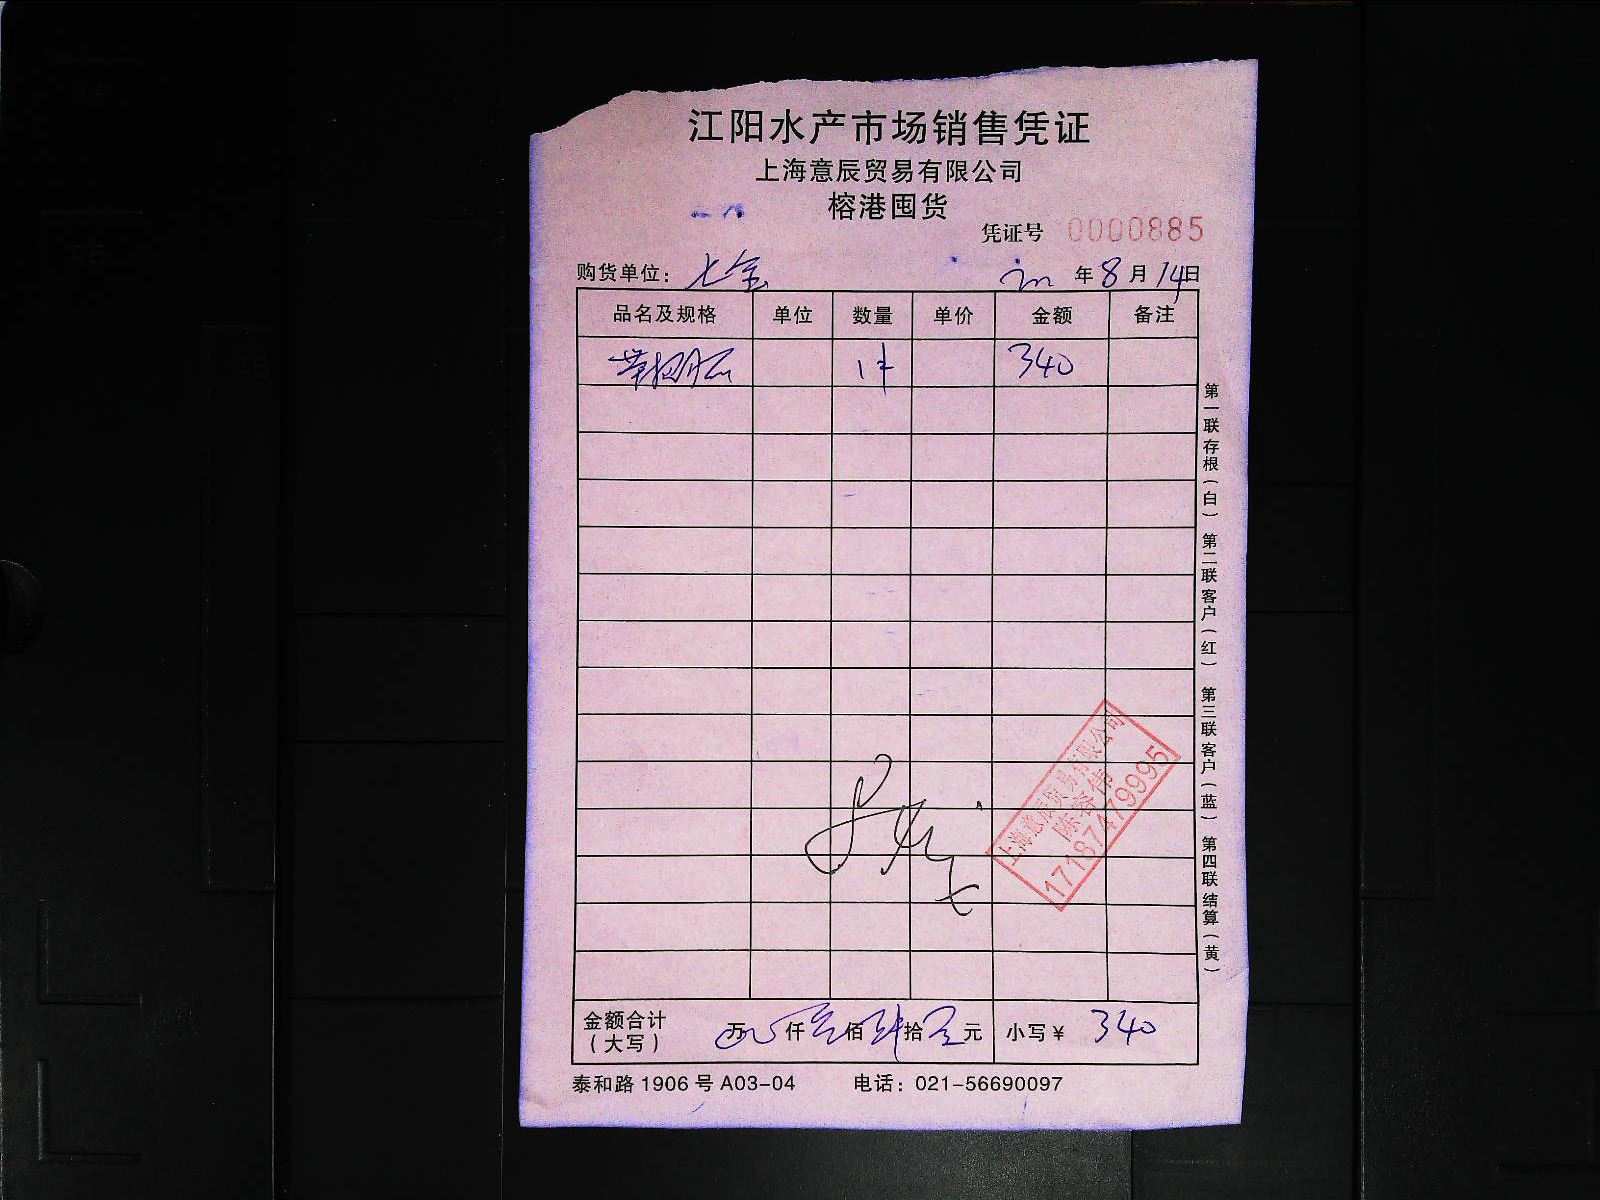 江阳水产市场销售凭证
上海意辰贸易有限公司
榕港囤货
凭证号 0000885
购货单位： 七宝 年 8 月 14 日
品名及规格 单位 数量 单价 金额 备注
1件 340
第一联存根（白） 第二联客户（红） 第三联客户（蓝） 第四联结算（黄）
上海意辰贸易有限公司
陈容伟
17187479995
金额合计 万 仟 叁 佰 肆 拾 元 小写￥ 340
（大写）
泰和路 1906 号 A03-04 电话：021-56690097